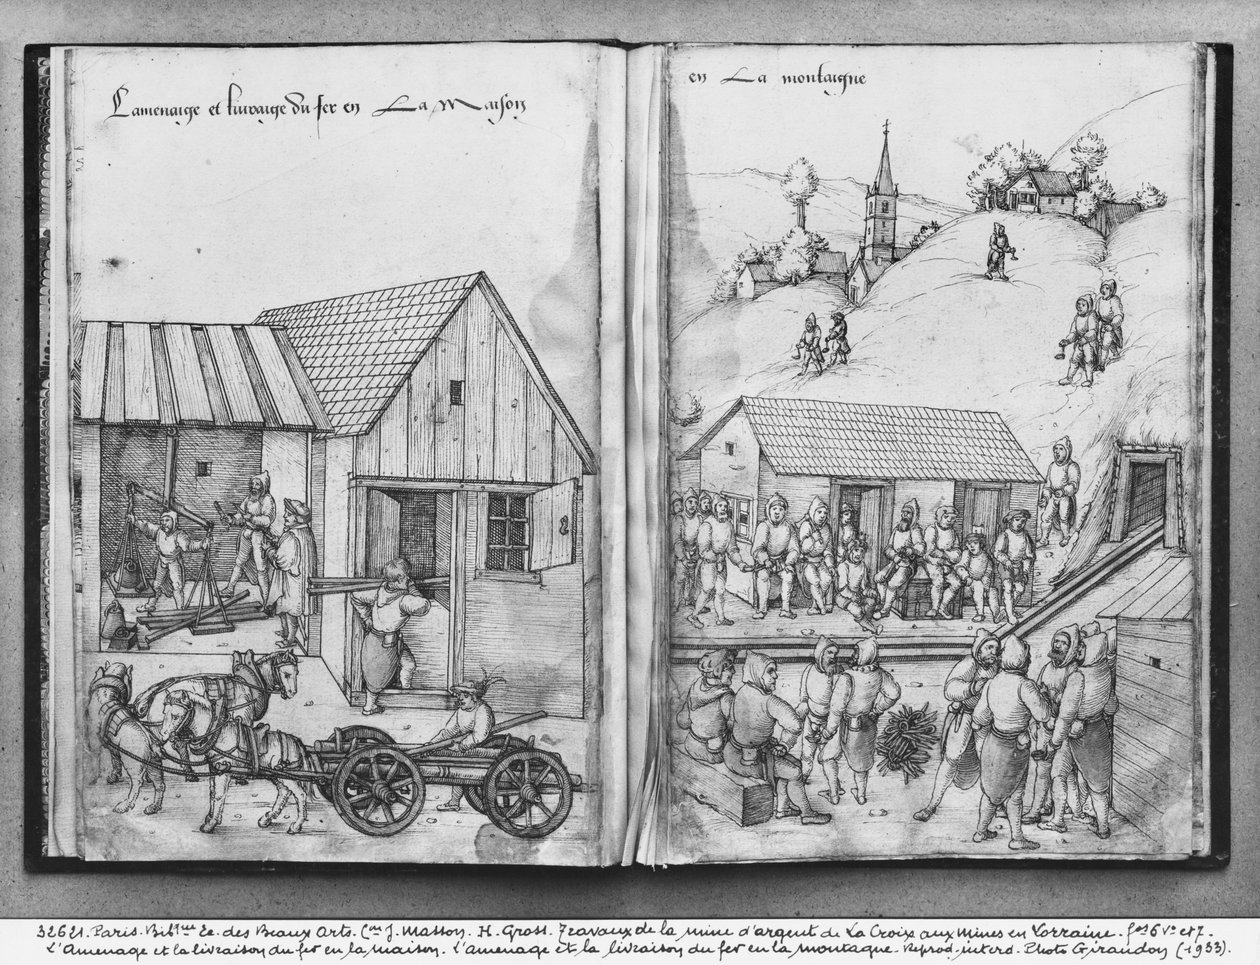 Lamenaige et livraige du fer en La Maison
en La montaigne
32621. Paris. Bibl<sup>que</sup> Ec. des Beaux Arts. C<sup>on</sup> J. Masson. H. Gross. Travaux de la mine d'argent de La Croix aux Mines en Lorraine. f<sup>os</sup> 6 v° et 7.
L'Amenage et la livraison du fer en la maison. L'Amenage et la livraison du fer en la montagne. Reprod. interd. Photo Giraudon (1933).